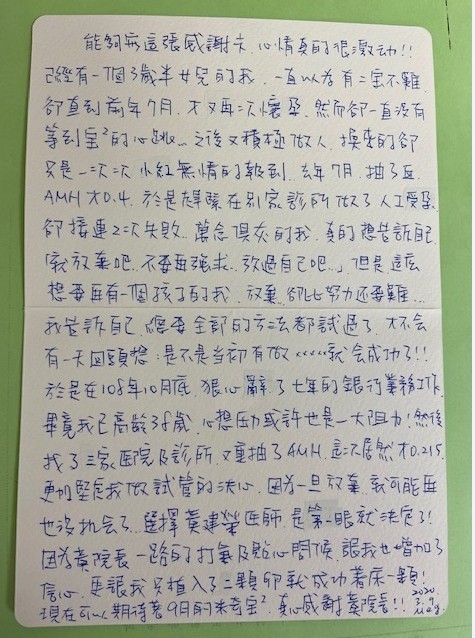 能夠寫這張感謝文.心情真的很激动!!
已經有一個3歲半女兒的我.一直以為有二宝不難.
卻直到前年7月.才又再次懷孕.然而卻一直沒有
等到宝²的心跳...之後又積極做人.換來的卻
只是一次一次小紅無情的報到.去年7月.抽了血
AMH才0.4.於是趕緊在別家診所做了人工受孕.
卻接連2次失敗.萬念俱灰的我.真的想告訴自己
「我放棄吧.不要再強求.放過自己吧.」但是這麼
想要再有一個孩子的我.放棄.卻比努力还要難...
我告訴自己.總要全部的方法都試過了.才不会
有一天回頭想:是不是当初有做.....就会成功了!!
於是在108年10月底.狠心辭了七年的銀行業務工作.
畢竟我已高齡38歲.心想压力或許也是一大阻力!然後
找了三家医院及診所.又重抽了AMH.這次居然才0.215.
更加堅定我做試管的決心.因為一旦放棄.就可能再
也沒机会了.選擇黃建榮医師.是第一眼就決定了!
因為黃院長一路的打氣及貼心問候.讓我也增加了
信心.更讓我只植入了二顆卵就成功著床一顆!
現在可以期待著9月的來奇宝².真心感謝黃院長!!
2020
3.9
Meg.